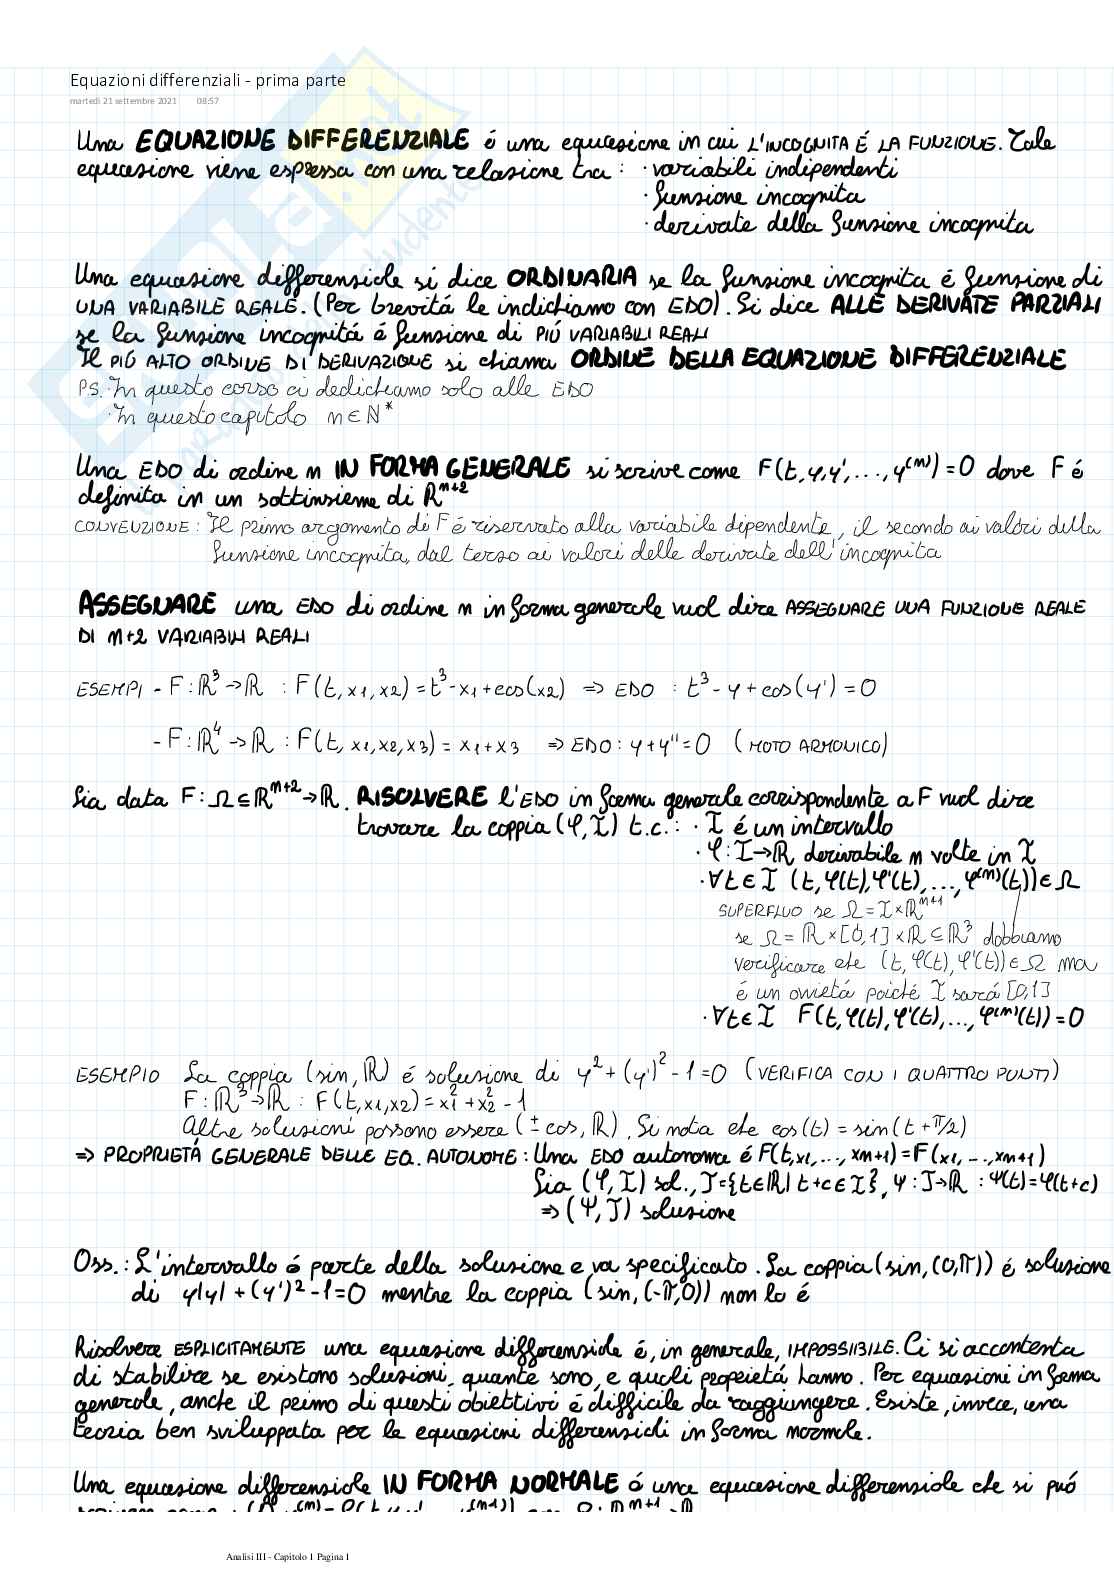 Equazioni differenziali - prima parte
martedì 21 settembre 2021 08:57
Una EQUAZIONE DIFFERENZIALE é una equazione in cui L'INCOGNITA É LA FUNZIONE. Tale
equazione viene espressa con una relazione tra: · variabili indipendenti
· funzione incognita
· derivate della funzione incognita
Una equazione differenziale si dice ORDINARIA se la funzione incognita é funzione di
UNA VARIABILE REALE. (Per brevitá le indichiamo con EDO). Si dice ALLE DERIVATE PARZIALI
se la funzione incognitá é funzione di PIÚ VARIABILI REALI
Il PIÚ ALTO ORDINE DI DERIVAZIONE si chiama ORDINE DELLA EQUAZIONE DIFFERENZIALE
PS. · In questo corso ci dedichiamo solo alle EDO
· In questo capitolo n ∈ N*
Una EDO di ordine n IN FORMA GENERALE si scrive come F(t, y, y', ..., y⁽ⁿ⁾) = 0 dove F é
definita in un sottinsieme di ℝⁿ⁺²
CONVENZIONE: Il primo argomento di F é riservato alla variabile dipendente, il secondo ai valori della
funzione incognita, dal terzo ai valori delle derivate dell'incognita
ASSEGNARE una EDO di ordine n in forma generale vuol dire ASSEGNARE UNA FUNZIONE REALE
DI n+2 VARIABILI REALI
ESEMPI - F: ℝ³ → ℝ : F(t, x1, x2) = t³ - x1 + cos(x2) ⇒ EDO : t³ - y + cos(y') = 0
- F: ℝ⁴ → ℝ : F(t, x1, x2, x3) = x1 + x3 ⇒ EDO: y + y'' = 0 (MOTO ARMONICO)
Sia data F: Ω ⊆ ℝⁿ⁺² → ℝ. RISOLVERE l'EDO in forma generale corrispondente a F vuol dire
trovare la coppia (φ, I) t.c.: · I é un intervallo
· φ: I → ℝ derivabile n volte in I
· ∀t ∈ I (t, φ(t), φ'(t), ..., φ⁽ⁿ⁾(t)) ∈ Ω
SUPERFLUO se Ω = I × ℝⁿ⁺¹
se Ω = ℝ × [0,1] × ℝ ⊆ ℝ³ dobbiamo
verificare che (t, φ(t), φ'(t)) ∈ Ω ma
é un ovvietá poiché I sará [0,1]
· ∀t ∈ I F(t, φ(t), φ'(t), ..., φ⁽ⁿ⁾(t)) = 0
ESEMPIO La coppia (sin, ℝ) é soluzione di y² + (y')² - 1 = 0 (VERIFICA CON I QUATTRO PUNTI)
F: ℝ³ → ℝ : F(t, x1, x2) = x1² + x2² - 1
Altre soluzioni possono essere (± cos, ℝ). Si nota che cos(t) = sin(t + π/2)
⇒ PROPRIETÁ GENERALE DELLE EQ. AUTONOME: Una EDO autonoma é F(t, x1, ..., xn+1) = F(x1, ..., xn+1)
Sia (φ, I) sol., J = {t ∈ ℝ | t+c ∈ I}, ψ: J → ℝ : ψ(t) = φ(t+c)
⇒ (ψ, J) soluzione
Oss.: L'intervallo é parte della soluzione e va specificato. La coppia (sin, (0, π)) é soluzione
di y|y| + (y')² - 1 = 0 mentre la coppia (sin, (-π, 0)) non lo é
Risolvere ESPLICITAMENTE una equazione differenziale é, in generale, IMPOSSIBILE. Ci si accontenta
di stabilire se esistono soluzioni, quante sono, e quali proprietá hanno. Per equazioni in forma
generale, anche il primo di questi obiettivi é difficile da raggiungere. Esiste, invece, una
teoria ben sviluppata per le equazioni differenziali in forma normale.
Una equazione differenziale IN FORMA NORMALE é una equazione differenziale che si può
Analisi III - Capitolo 1 Pagina 1